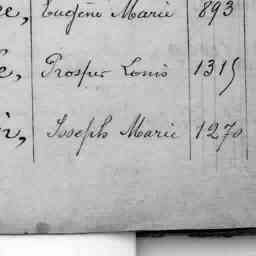 Eugène Marie 893
Prosper Louis 1315
Joseph Marie 1270